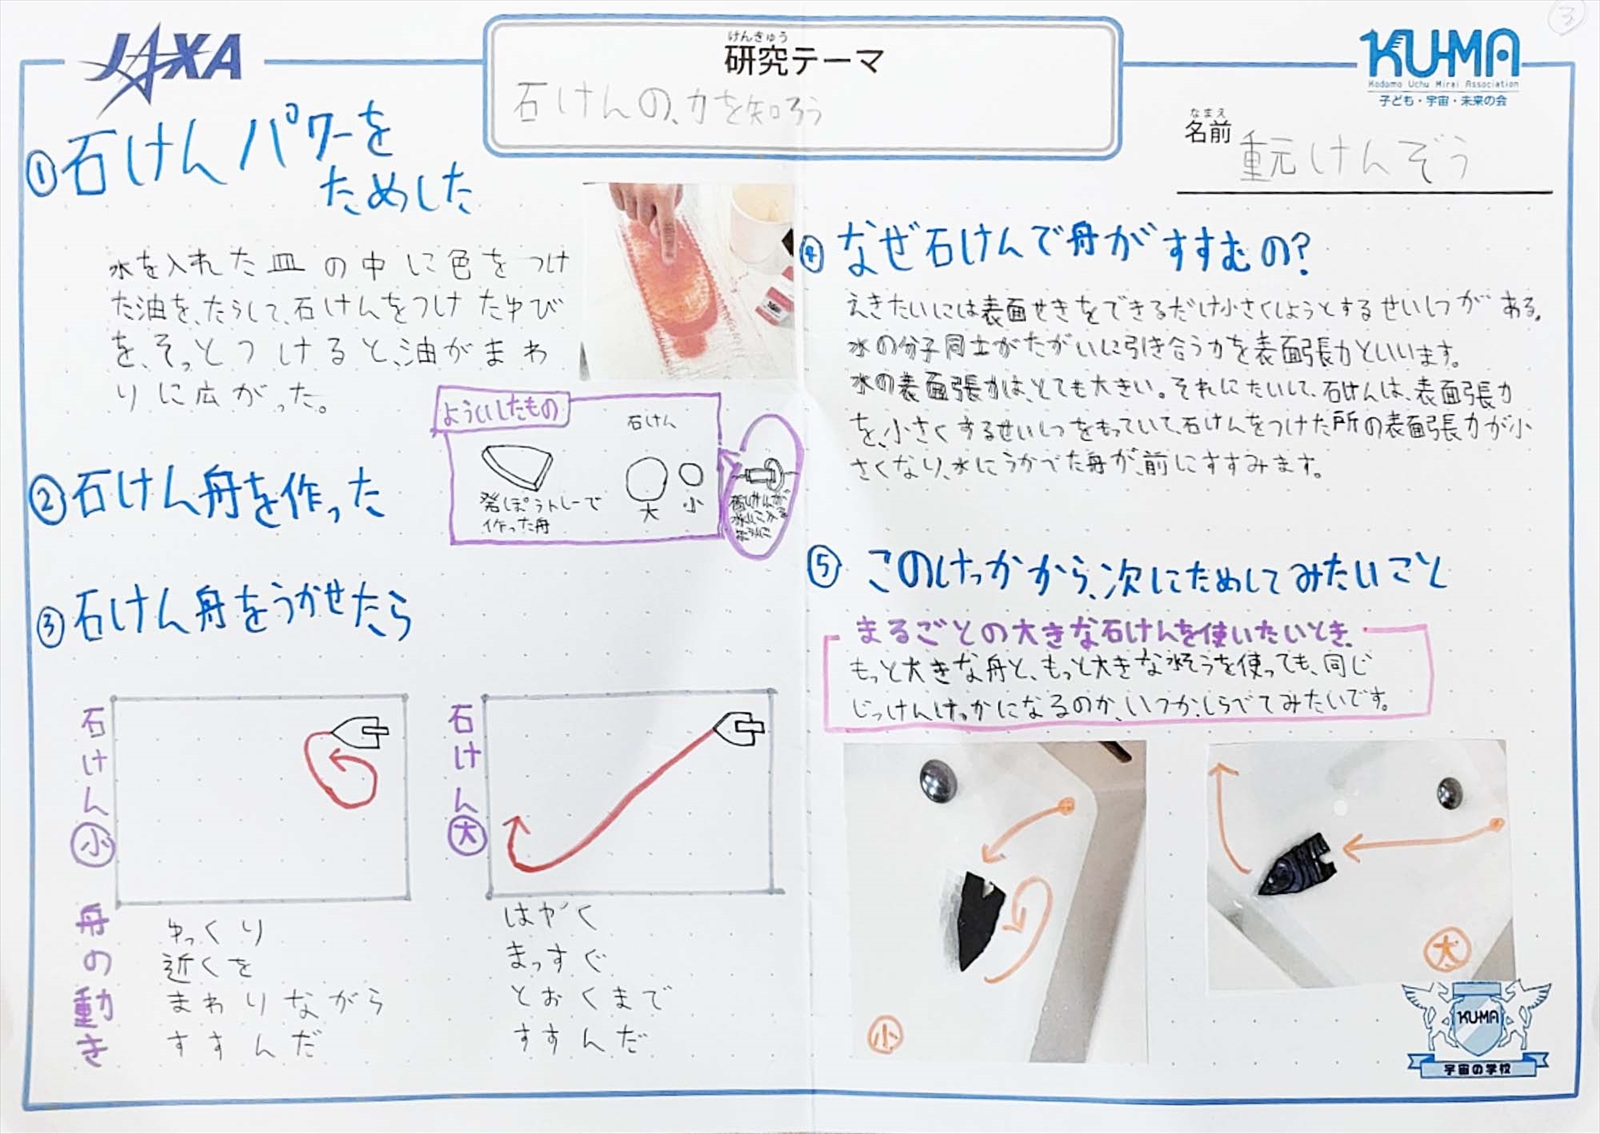 JAXA
けんきゅう
研究テーマ
石けんの、力を知ろう
KU-MA
Kodomo Uchu Mirai Association
子ども・宇宙・未来の会
なまえ
名前
重元けんぞう
3
① 石けんパワーを
ためした
水を入れた皿の中に色をつけ
た油を、たらして、石けんをつけたゆび
を、そっとつけると、油がまわ
りに広がった。
② 石けん舟を作った
よういしたもの
石けん
発ぽうトレーで
作った舟
大
小
③ 石けん舟をうかせたら
石けん小
石けん大
舟の動き
ゆっくり
近くを
まわりながら
すすんだ
はやく
まっすぐ
とおくまで
すすんだ
④ なぜ石けんで舟がすすむの?
えきたいには表面せきをできるだけ小さくしようとするせいしつがある。
水の分子同士がたがいに引き合う力を表面張力といいます。
水の表面張力は、とても大きい。それにたいして、石けんは、表面張力
を、小さくするせいしつをもっていて、石けんをつけた所の表面張力が小
さくなり、水にうかべた舟が、前にすすみます。
⑤ このけっかから、次にためしてみたいこと
まるごとの大きな石けんを使いたいとき、
もっと大きな舟と、もっと大きな水そうを使っても、同じ
じっけんけっかになるのか、いつか、しらべてみたいです。
小
大
KU-MA
宇宙の学校